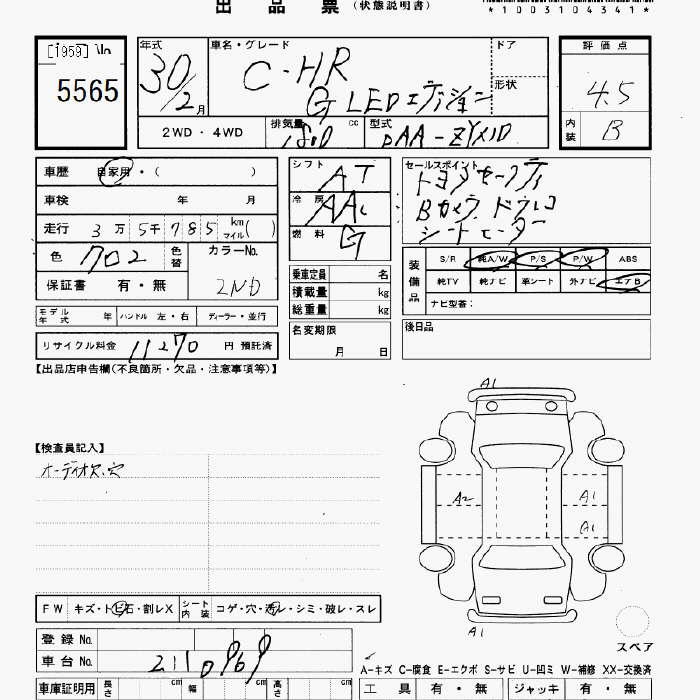 出品票(状態説明書)
*1003104341*
[1959]
5565
年式 30/2月
車名・グレード C-HR G LEDエディション
ドア
形状
評価点 4.5
内装 B
2WD・4WD
排気量 1800 cc
型式 DAA-ZYX10
車歴 自家用・( )
車検 年 月
走行 3万5千785 km マイル( )
色 クロ2 色替
カラーNo. 2ND
保証書 有・無
シフト AT
冷房 AAC
燃料 G
乗車定員 名
積載量 kg
総重量 kg
セールスポイント
トヨタセーフティ
Bカメラ ドラレコ
シートヒーター
装備品 S/R 純A/W P/S P/W ABS
純TV 純ナビ 革シート 外ナビ エアB
ナビ型番:
モデル年式 年 ハンドル 左・右 ディーラー・並行
名変期限 月 日
後日品
リサイクル料金 11270 円 預託済
【出品店申告欄(不良箇所・欠品・注意事項等)】
A1
【検査員記入】
オーディオ欠、穴
A2
A1
A1
FW キズ・トビ石・割レX
シート内装 コゲ・穴・汚レ・シミ・破レ・スレ
A1
スペア
登録No.
車台No. 2110969
A-キズ C-腐食 E-エクボ S-サビ U-凹ミ W-補修 XX-交換済
車庫証明用 長さ cm 幅 cm 高さ cm
工具 有・無 ジャッキ 有・無